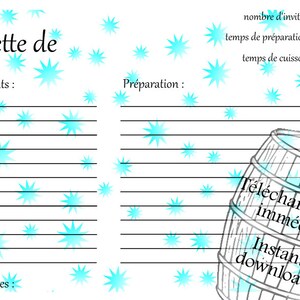 nombre d'invit
ette de
temps de préparation
temps de cuisso
ts :
Préparation :
Télécha
immé
Instan
downloa
es :